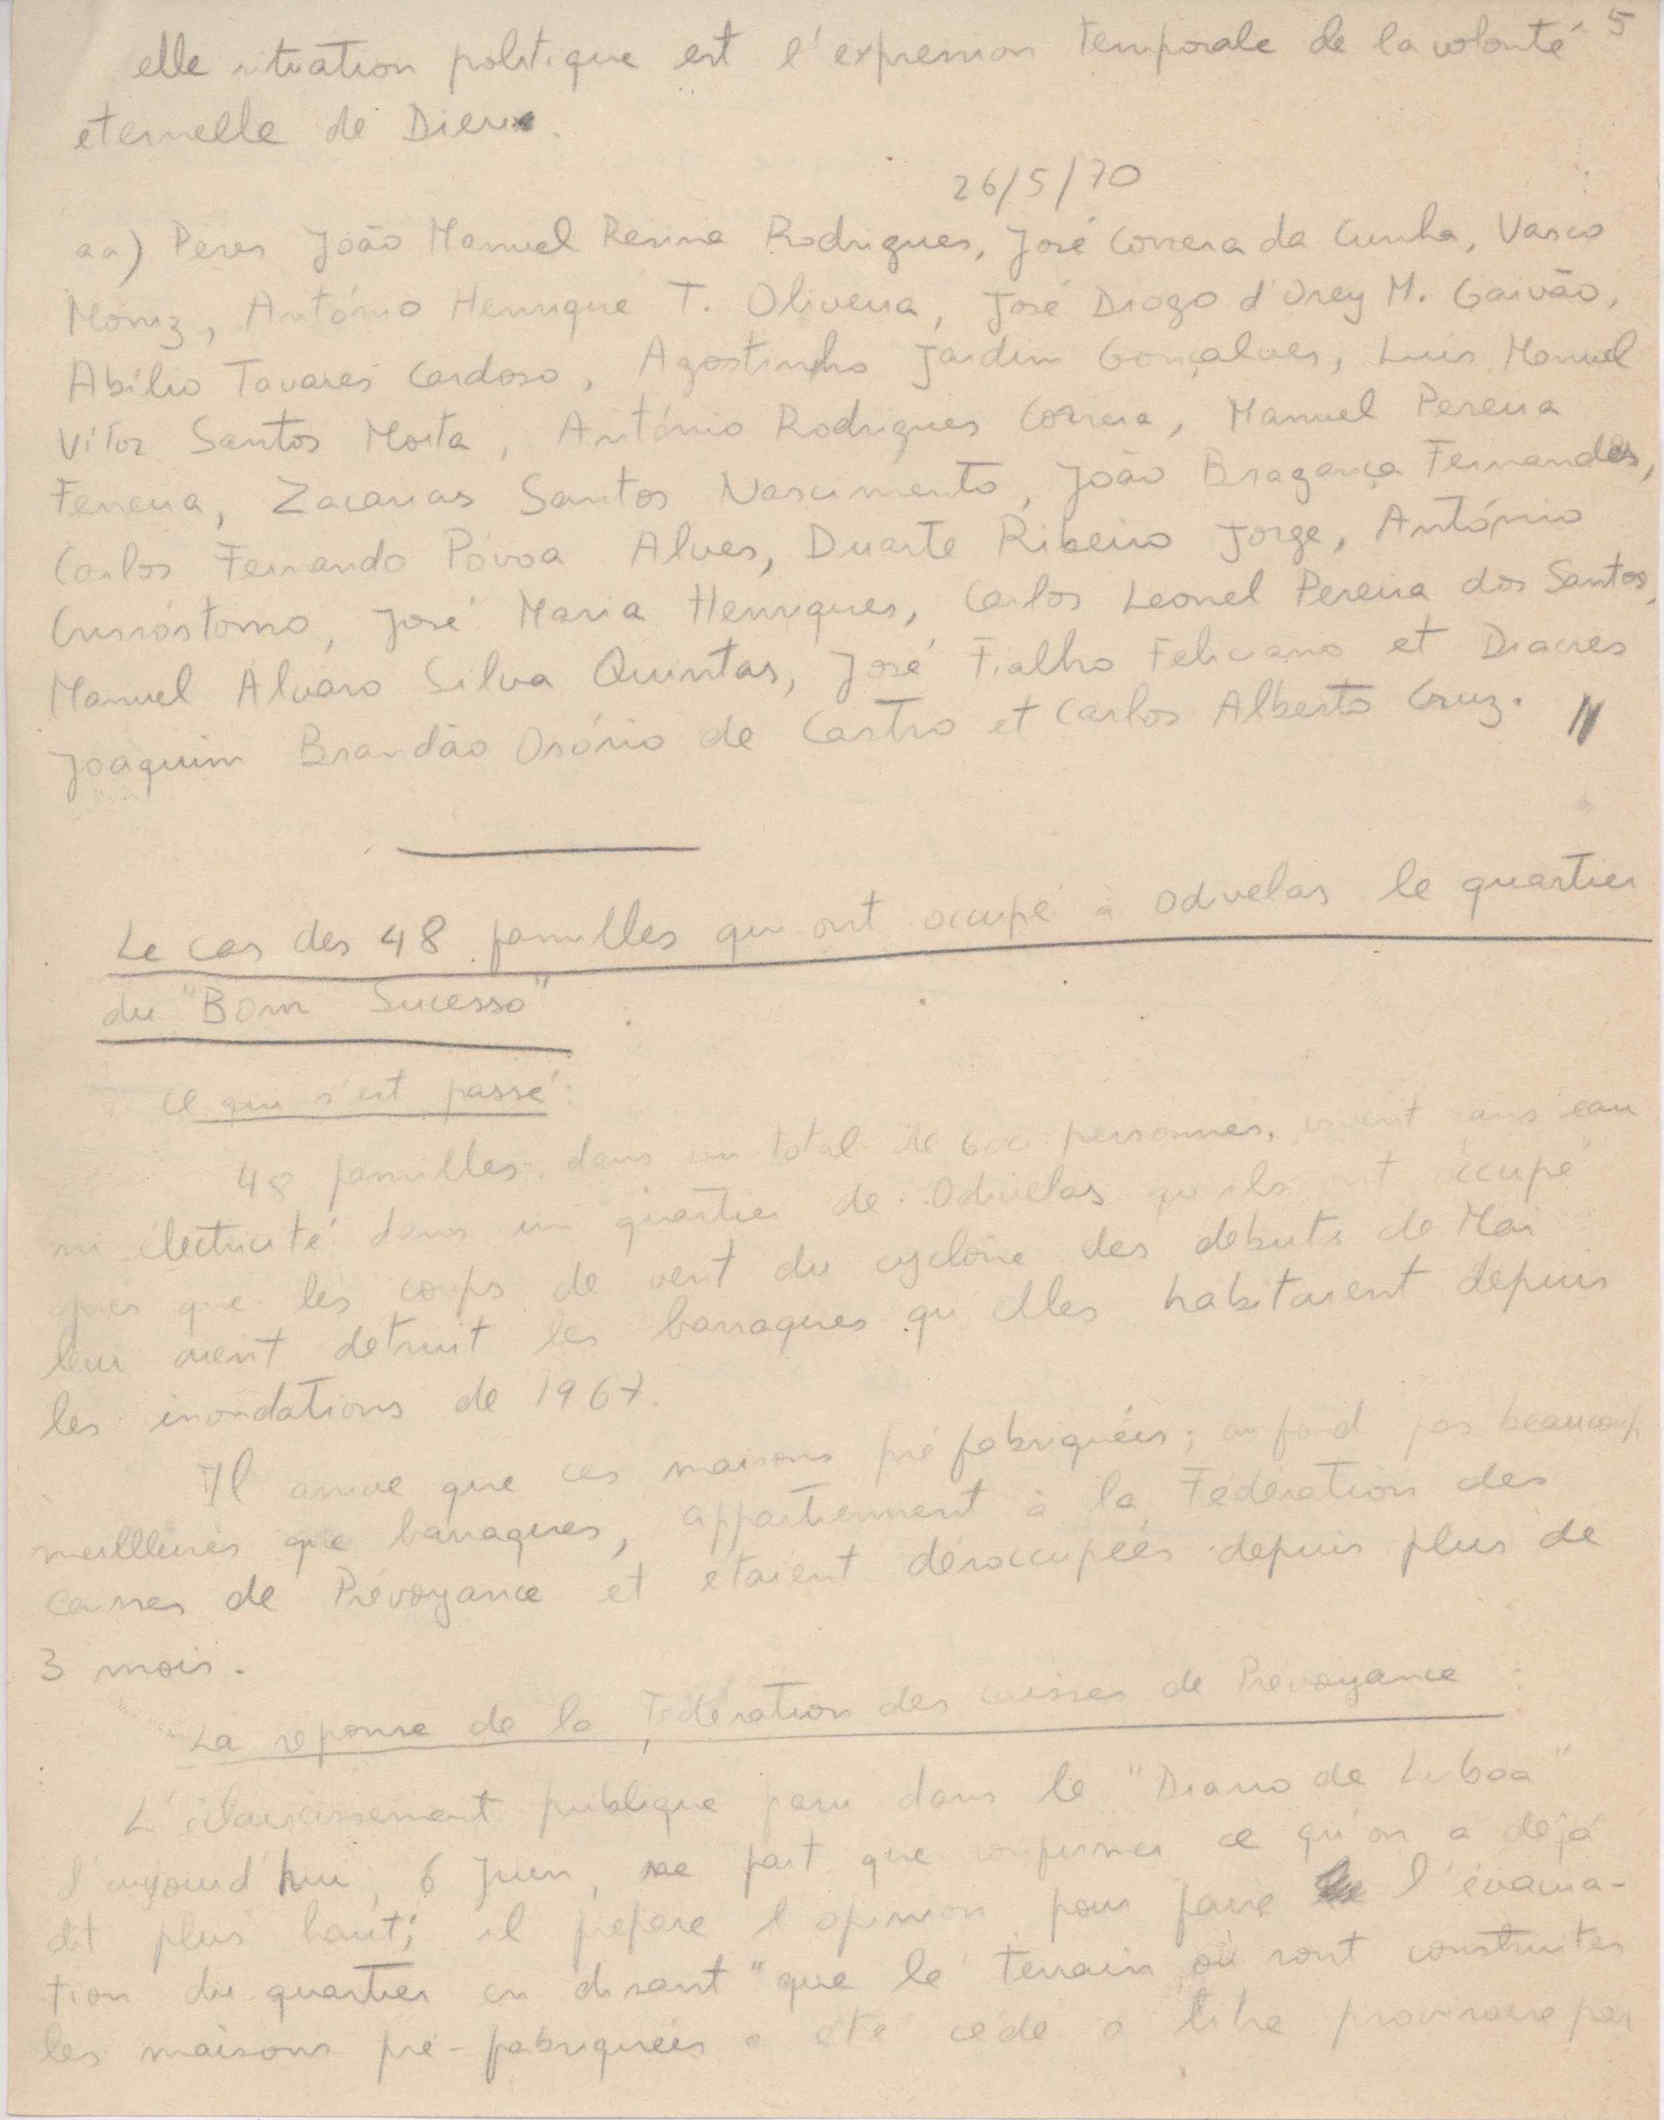 5
elle situation politique est l'expression temporale de la volonté
eternelle de Dieu.
26/5/70
aa) Peres João Manuel Resina Rodrigues, José Correia da Cunha, Vasco
Moniz, António Henrique T. Oliveira, José Diogo d'Orey M. Gaivão,
Abílio Tavares Cardoso, Agostinho Jardim Gonçalves, Luis Manuel
Vítor Santos Moita, António Rodrigues Correia, Manuel Pereira
Ferreira, Zacarias Santos Nascimento, João Bragança Fernandes,
Carlos Fernando Póvoa Alves, Duarte Ribeiro Jorge, António
Crisóstomo, José Maria Henriques, Carlos Leonel Pereira dos Santos,
Manuel Álvaro Silva Quintas, José Fialho Feliciano et Diacres
Joaquim Brandão Osório de Castro et Carlos Alberto Cruz. //
Le cas des 48 familles qui ont occupé à Odivelas le quartier
du "Bom Sucesso"
Ce qui s'est passé:
48 familles, dans un total de 600 personnes, vivent sans eau
ni électricité dans un quartier de Odivelas qu'ils ont occupé
après que les coups de vent du cyclone des debuts de Mai
leur aient detruit les barraques qu'elles habitaient depuis
les inondations de 1967.
Il arrive que ces maisons préfabriquées, au fond pas beaucoup
meilleures que barraques, appartiennent à la Fédération des
caisses de Prévoyance et etaient désoccupées depuis plus de
3 mois.
La reponse de la Fédération des caisses de Prevoyance :
L'éclaircissement publique paru dans le "Diario de Lisboa"
d'aujourd'hui, 6 Juin, ne fait que confirmer ce qu'on a déjá
dit plus haut; il prépare l'opinion pour faire l'évacua-
tion du quartier en disant "que le terrain où sont construites
les maisons pré-fabriquées a été cédé a titre provisoire par